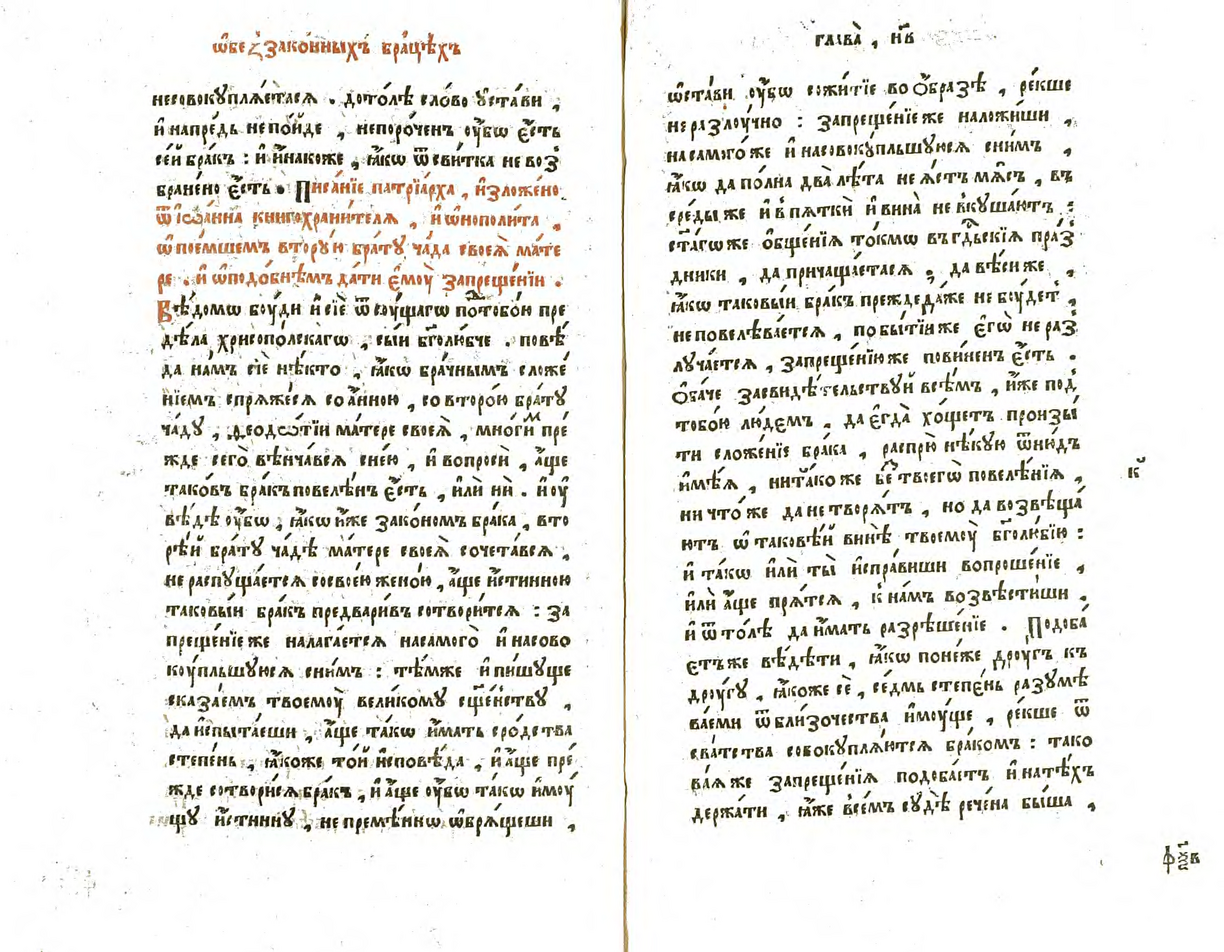 ѡ҆беꙁꙁако́нныхъ бра́цѣхъ
несовокупля́етсѧ . дото́лѣ сло́во ᲂу҆ста́ви ,
и҆ напре́дь непо́йде , непоро́ченъ ᲂу҆́бѡ є҆́сть
се́й бра́къ : и҆ и҆́накоже , ꙗ҆́кѡ ѿ сви́тка не воꙁ
бране́но є҆́сть . Писа́нїе патрїа́рха , и҆ꙁложе́но
ѿ і҆ѡа́нна книгохрани́телѧ , и҆ ѡ҆нополи́та ,
ѡ҆ пое́мшемъ втору́ю бра́ту ча́да своеѧ̀ ма́те
ре . и҆ ѡ҆ подо́бнѣмъ да́ти є҆моу̀ ꙁапреще́нїи .
Вѣ́домѡ боу́ди и҆ сїѐ ѿ сѹ́щагѡ по́тобо́ю пре
дѣ́ла хрисопо́лскагѡ , сы́и бг҃олю́бче . повѣ́
да на́мъ сїѐ нѣ́кто , ꙗ҆́кѡ бра́чнымъ сложе́
нїемъ спрѧже́сѧ со а҆́нною , со второ́ю бра́ту
ча́ду , деодѡ́тїи ма́тере своеѧ̀ , мно́гимъ пре́
жде сего̀ вѣнча́всѧ сне́ю , и҆ вопросѝ , а҆́ще
тако́въ бра́къ повелѣ́нъ є҆́сть , и҆лѝ нѝ . и҆ оу҆
вѣ́дѣ ᲂу҆́бѡ , ꙗ҆́кѡ и҆́же ꙁако́номъ бра́ка , вто
рѣ́й бра́ту ча́дѣ ма́тере своеѧ̀ сочета́всѧ ,
не распуща́етсѧ сосвое́ю жено́ю , а҆́ще и҆́стинною
таковы́и бра́къ предвари́въ сотвори́тсѧ : ꙁа
преще́нїе же налага́етсѧ насамого̀ и҆ насово
коу́пльшуюсѧ сни́мъ : тѣ́мже и҆ пи́шуще
ска́ꙁаемъ твоемоу̀ вели́кому сщ҃е́нству ,
да и҆спыта́еши , а҆́ще та́кѡ и҆́мать сро́дства
степе́нь , ꙗ҆́коже то́й и҆сповѣ́да , и҆ а҆́ще пре́
жде сотвори́сѧ бра́къ , и҆ а҆́ще ᲂу҆́бѡ та́кѡ и҆моу́
щу и҆́стинну , не премѣ́ннѡ ѡ҆брѧ́щеши ,
глава̀ , н҃в
ѡ҆ста́ви ᲂу҆́бѡ сожи́тїе во ѻ҆́браꙁѣ , ре́кше
не раꙁлоу́чно : ꙁапреще́нїе же наложи́ши ,
на самого́же и҆ насовоку́пльшуюсѧ сни́мъ ,
ꙗ҆́кѡ да по́лна два лѣ́та не ꙗ҆стъ мѧ́съ , въ
среды́ же и҆ в пѧткѝ и҆ вина̀ не вкуша́ютъ :
ст҃а́гѡ же ѻ҆бще́нїѧ то́кмѡ въ гд҇ьскїѧ пра́ꙁ
дники , да причаща́етсѧ , да вѣ́си же ,
ꙗ҆́кѡ таковы́и бра́къ преждеда́же не боу́дет ,
не повелѣва́етсѧ , по бы́тїи же є҆гѡ̀ не раꙁ
луча́етсѧ , ꙁапреще́нїю же пови́ненъ є҆́сть .
ѻ҆ба́че ꙁасвидѣ́тельствуй всѣ́мъ , и҆́же под
тобо́ю лю́демъ . да є҆гда̀ хо́щетъ произы́
ти сложе́нїе бра́ка , распрю̀ нѣ́кую ѿню́дъ
и҆мѣ́ѧ , нита́ко же беꙁ твоего̀ повелѣ́нїѧ ,
ни что́ же да не творѧ́тъ , но да воꙁвѣща́
ютъ ѡ҆ таковѣ́й винѣ̀ твоемоу̀ бг҃олю́бїю :
и҆ та́кѡ и҆лѝ ты̀ и҆спра́виши вопроше́нїе ,
и҆лѝ а҆́ще прѧ́тсѧ , к на́мъ воꙁвѣсти́ши .
и҆ ѿто́лѣ да и҆́мать раꙁрѣше́нїе . Подоба́
етъ же вѣ́дѣти , ꙗ҆́кѡ поне́же дроу́гъ къ
дроу́гу , ꙗ҆́коже сѐ , се́дмь степе́нь раꙁумѣ
ва́еми ѿ бли́ꙁочества и҆моу́ще , ре́кше ѿ
сва́тства совокуплѧ́ютсѧ бра́комъ : тако
ва́ѧ же ꙁапреще́нїѧ подоба́етъ и҆ на тѣ́хъ
держа́ти , ꙗ҆́же всѣ́мъ сꙋдѣ̀ рече́на бы́ша ,
к҃